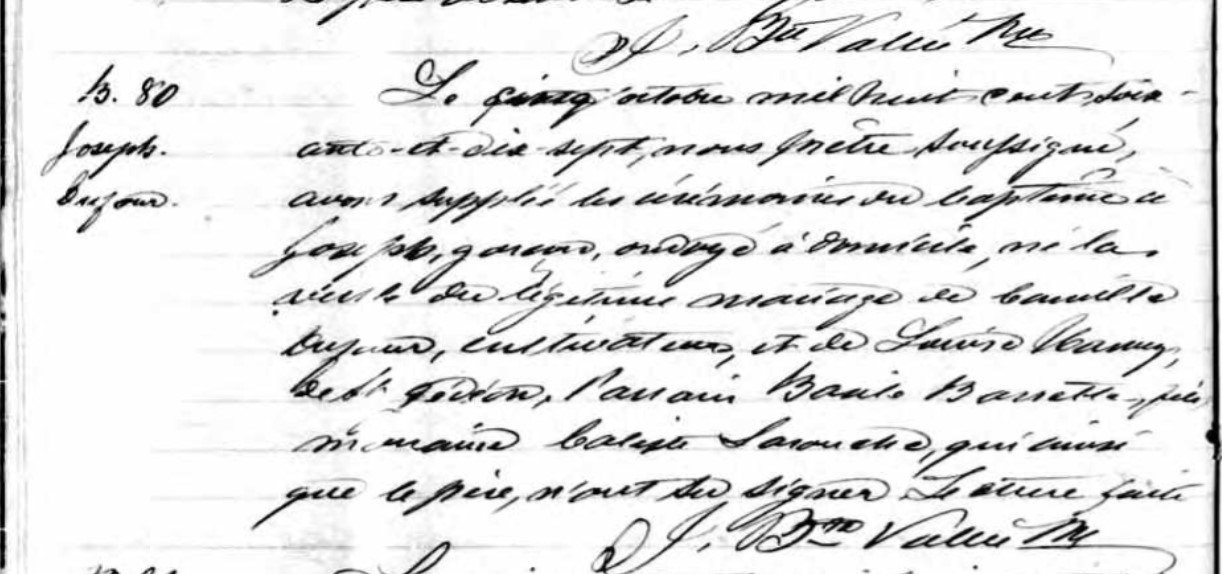 J. Bte Vallée Ptre
B. 80
Joseph
Dufour.
Le cinq octobre mil huit cent soix-
ante-et-dix-sept, nous prêtre soussigné,
avons suppléé les cérémonies du baptême à
Joseph, garçon, ondoyé à domicile, né la
veille du légitime mariage de Camille
Dufour, cultivateur, et de Louise
de St Gédéon, Parrain Basile
marraine Calixte Larouche, qui ainsi
que le père, n'ont su signer Lecture faite
J. Bte Vallée Ptre